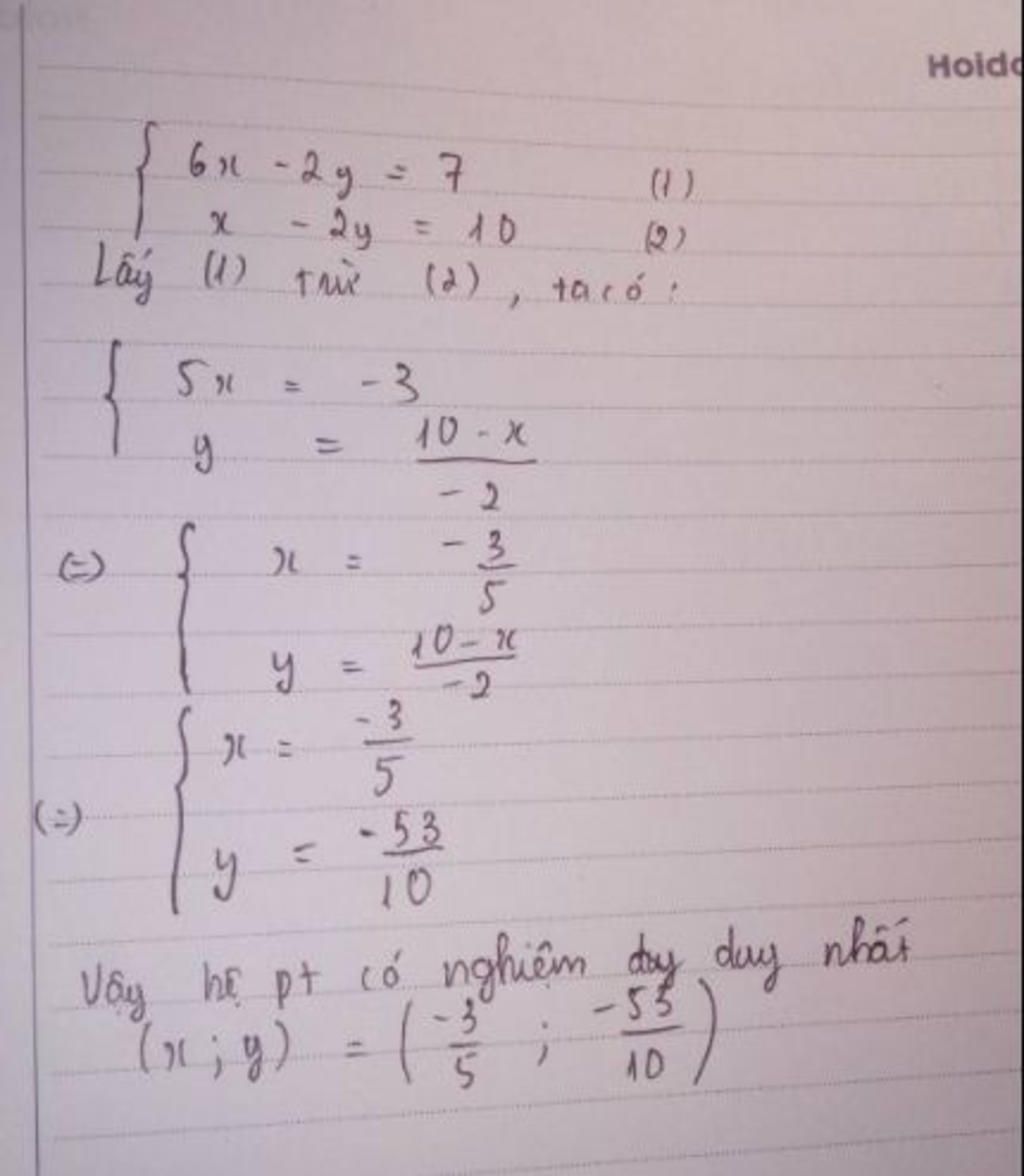 Hoido
{ 6x - 2y = 7 (1)
x - 2y = 10 (2)
Lấy (1) trừ (2), ta có:
{ 5x = -3
y = \frac{10 - x}{-2}
(=) { x = -\frac{3}{5}
y = \frac{10 - x}{-2}
(=) { x = \frac{-3}{5}
y = \frac{-53}{10}
Vậy hệ pt có nghiệm duy nhất
(x ; y) = ( \frac{-3}{5} ; \frac{-53}{10} )